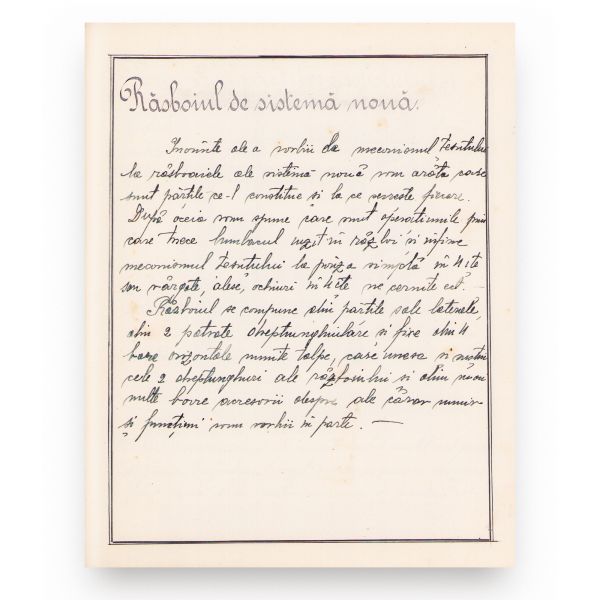 Răsboiul de sistemă nouă.
Înainte de a vorbi de mecanismul Țesutului
la răsboaiele de sistemă nouă vom arăta care
sunt părțile ce-l constitue și la ce servește fiecare.
După aceia vom spune care sunt operațiunile prin
care trece bumbacul în război și infine
mecanismul Țesutului la pânza simplă în 4 ițe
sau vărgate, alese, ochiuri în 4 ițe
Răsboiul se compune din părțile sale laterale,
din 2 patrate dreptunghiulare și fixe din 4
bare orizontale numite talpe, care unesc și susțin
cele 2 dreptunghiuri ale răsboiului și din mai
multe bare accesorii despre ale căror număr
și funcțiuni vom vorbi în parte. —